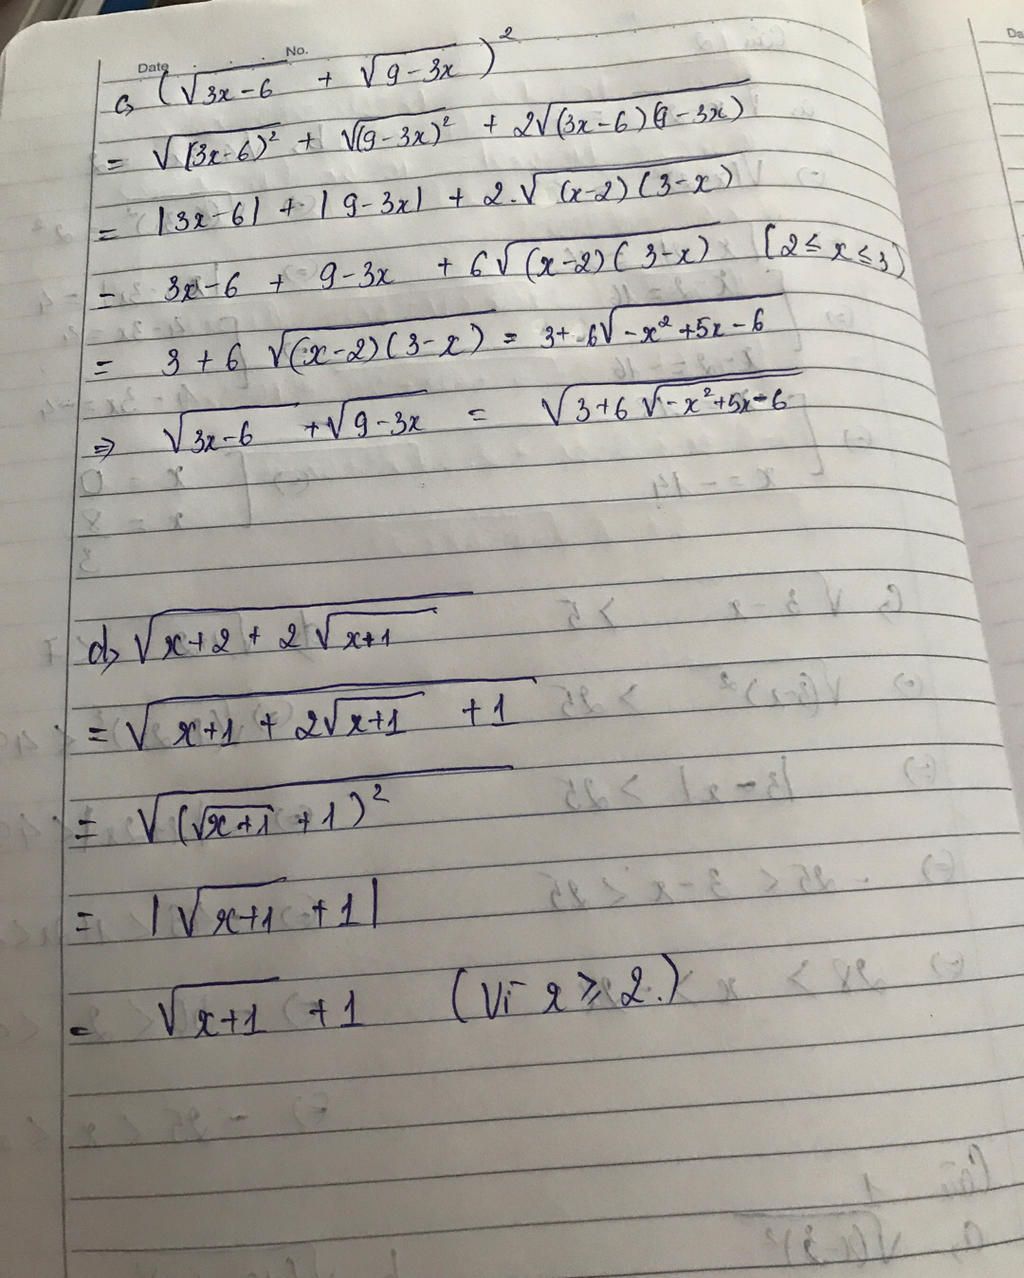 Date No. Da
c, (√3x-6 + √9-3x)²
= √(3x-6)² + √(9-3x)² + 2√(3x-6)(9-3x)
= |3x-6| + |9-3x| + 2.√(x-2)(3-x)
= 3x-6 + 9-3x + 6√(x-2)(3-x) (2≤x≤3)
= 3 + 6 √(x-2)(3-x) = 3+ 6√-x²+5x-6
=> √3x-6 + √9-3x = √3+6√-x²+5x-6
d, √x+2+2√x+1
= √x+1+2√x+1 +1
= √(√x+1+1)²
= |√x+1+1|
= √x+1 +1 (Vì x≥2.)